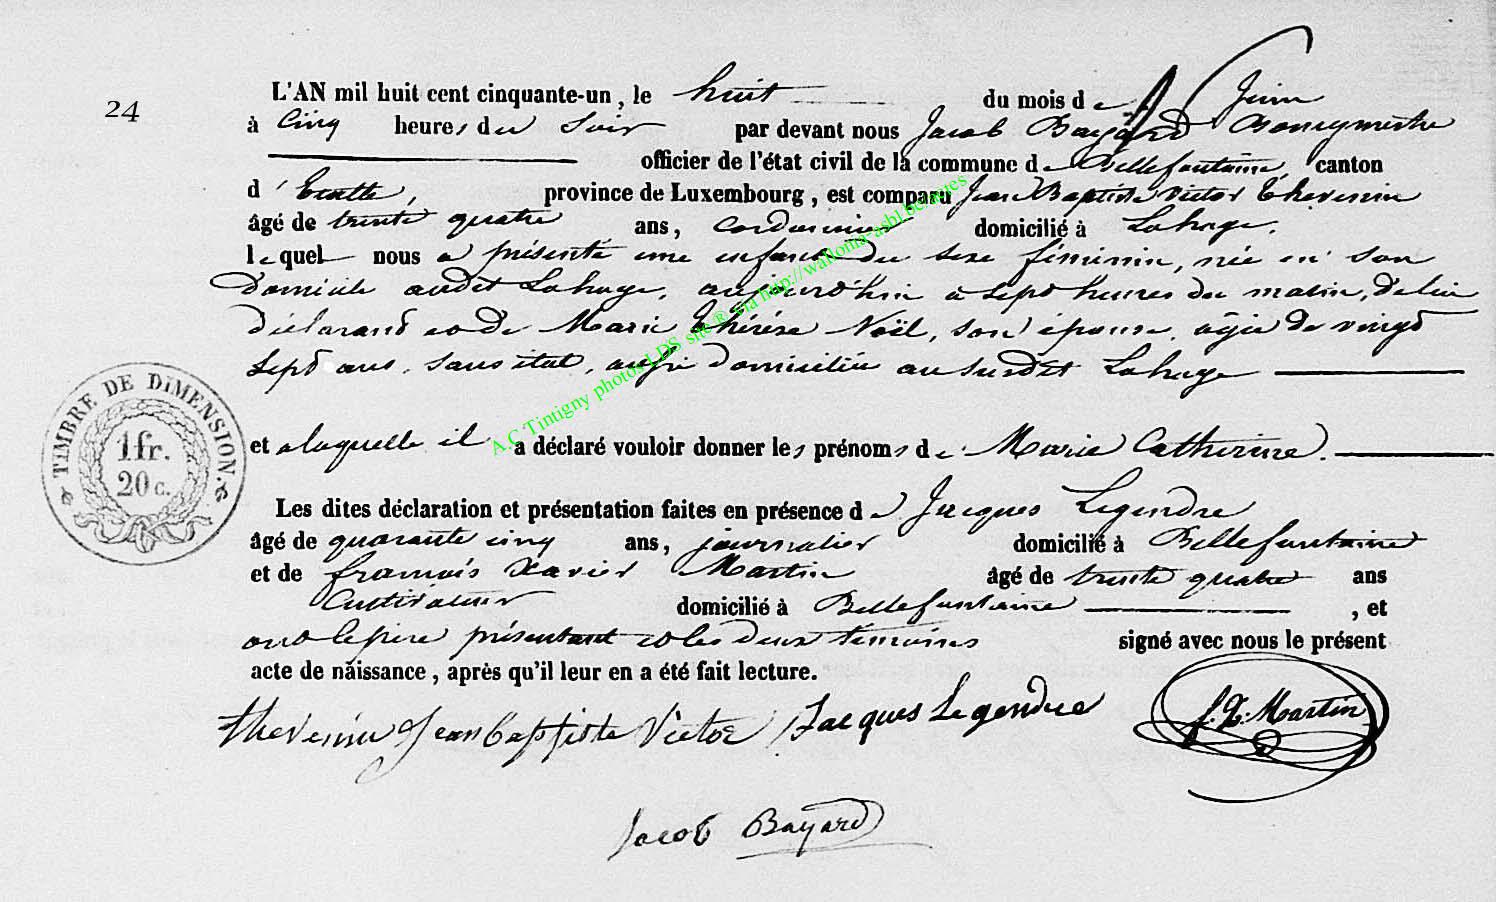 24
L'AN mil huit cent cinquante-un, le huit du mois de Juin
à Cinq heures du Soir par devant nous Jacob Bayard Bourgmestre
officier de l'état civil de la commune de Bellefontaine, canton
d'Etalle, province de Luxembourg, est comparu Jean Baptiste Victor Thevenin
âgé de trente quatre ans, cordonnier domicilié à Lahage,
lequel nous a présenté une enfant du sexe féminin, née en son
domicile audit Lahage, aujourd'hui à sept heures du matin, de lui
déclarant et de Marie Thérèse Noël, son épouse, âgée de vingt
sept ans, sans état, aussi domiciliée au susdit Lahage
et a laquelle il a déclaré vouloir donner les prénoms de Marie Catherine.
Les dites déclaration et présentation faites en présence de Jacques Legendre
âgé de quarante cinq ans, journalier domicilié à Bellefontaine
et de francois Xavier Martin âgé de trente quatre ans
Cultivateur domicilié à Bellefontaine, et
ont le père présentant et les deux témoins signé avec nous le présent
acte de naissance, après qu'il leur en a été fait lecture.
thevenin Jean baptiste Victor Jacques Legendre f. X. Martin
Jacob Bayard
TIMBRE DE DIMENSION.
1 fr.
20 c.
A.C Tintigny photos LDS site ® via http://wallonia-asbl.be/actes